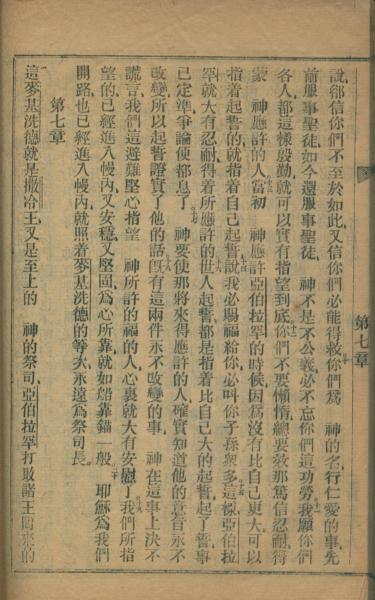 說、卻信你們不至於如此、又信你們必能得救、你們爲　神的名、行仁愛的事、先
前服事聖徒、如今還服事聖徒、　神不是不公義、必不忘你們這功勞、我願你們
各人都這樣慇勤、就可以實有指望到底、你們不要懶惰、總要效那篤信忍耐、得
蒙　神應許的人、當初　神應許亞伯拉罕的時候、因爲沒有比自己更大可以
指着起誓的、就指着自己起誓說、我必賜福給你、必叫你子孫衆多、這樣亞伯拉
罕就大有忍耐、得着所應許的、世人起誓、都是指着比自己大的起誓、起了誓、事
已定準、爭論便都息了、　神要使那將來得應許的人、確實知道他的意旨永不
改變、所以起誓證實了他的話、旣有這兩件永不改變的事、　神在這事上決不
謊言、我們這避難堅心指望　神所許的福的人、心裏就大有安慰了、我們所指
望的、已經進入幔內、又安穩又堅固、爲心所靠、就如船靠錨一般、　耶穌爲我們
開路、也已經進入幔內、就照着麥基洗德的等次、永遠爲祭司長、
第七章
這麥基洗德就是撒冷王、又是至上的　神的祭司、亞伯拉罕打敗諸王回來的
第七章